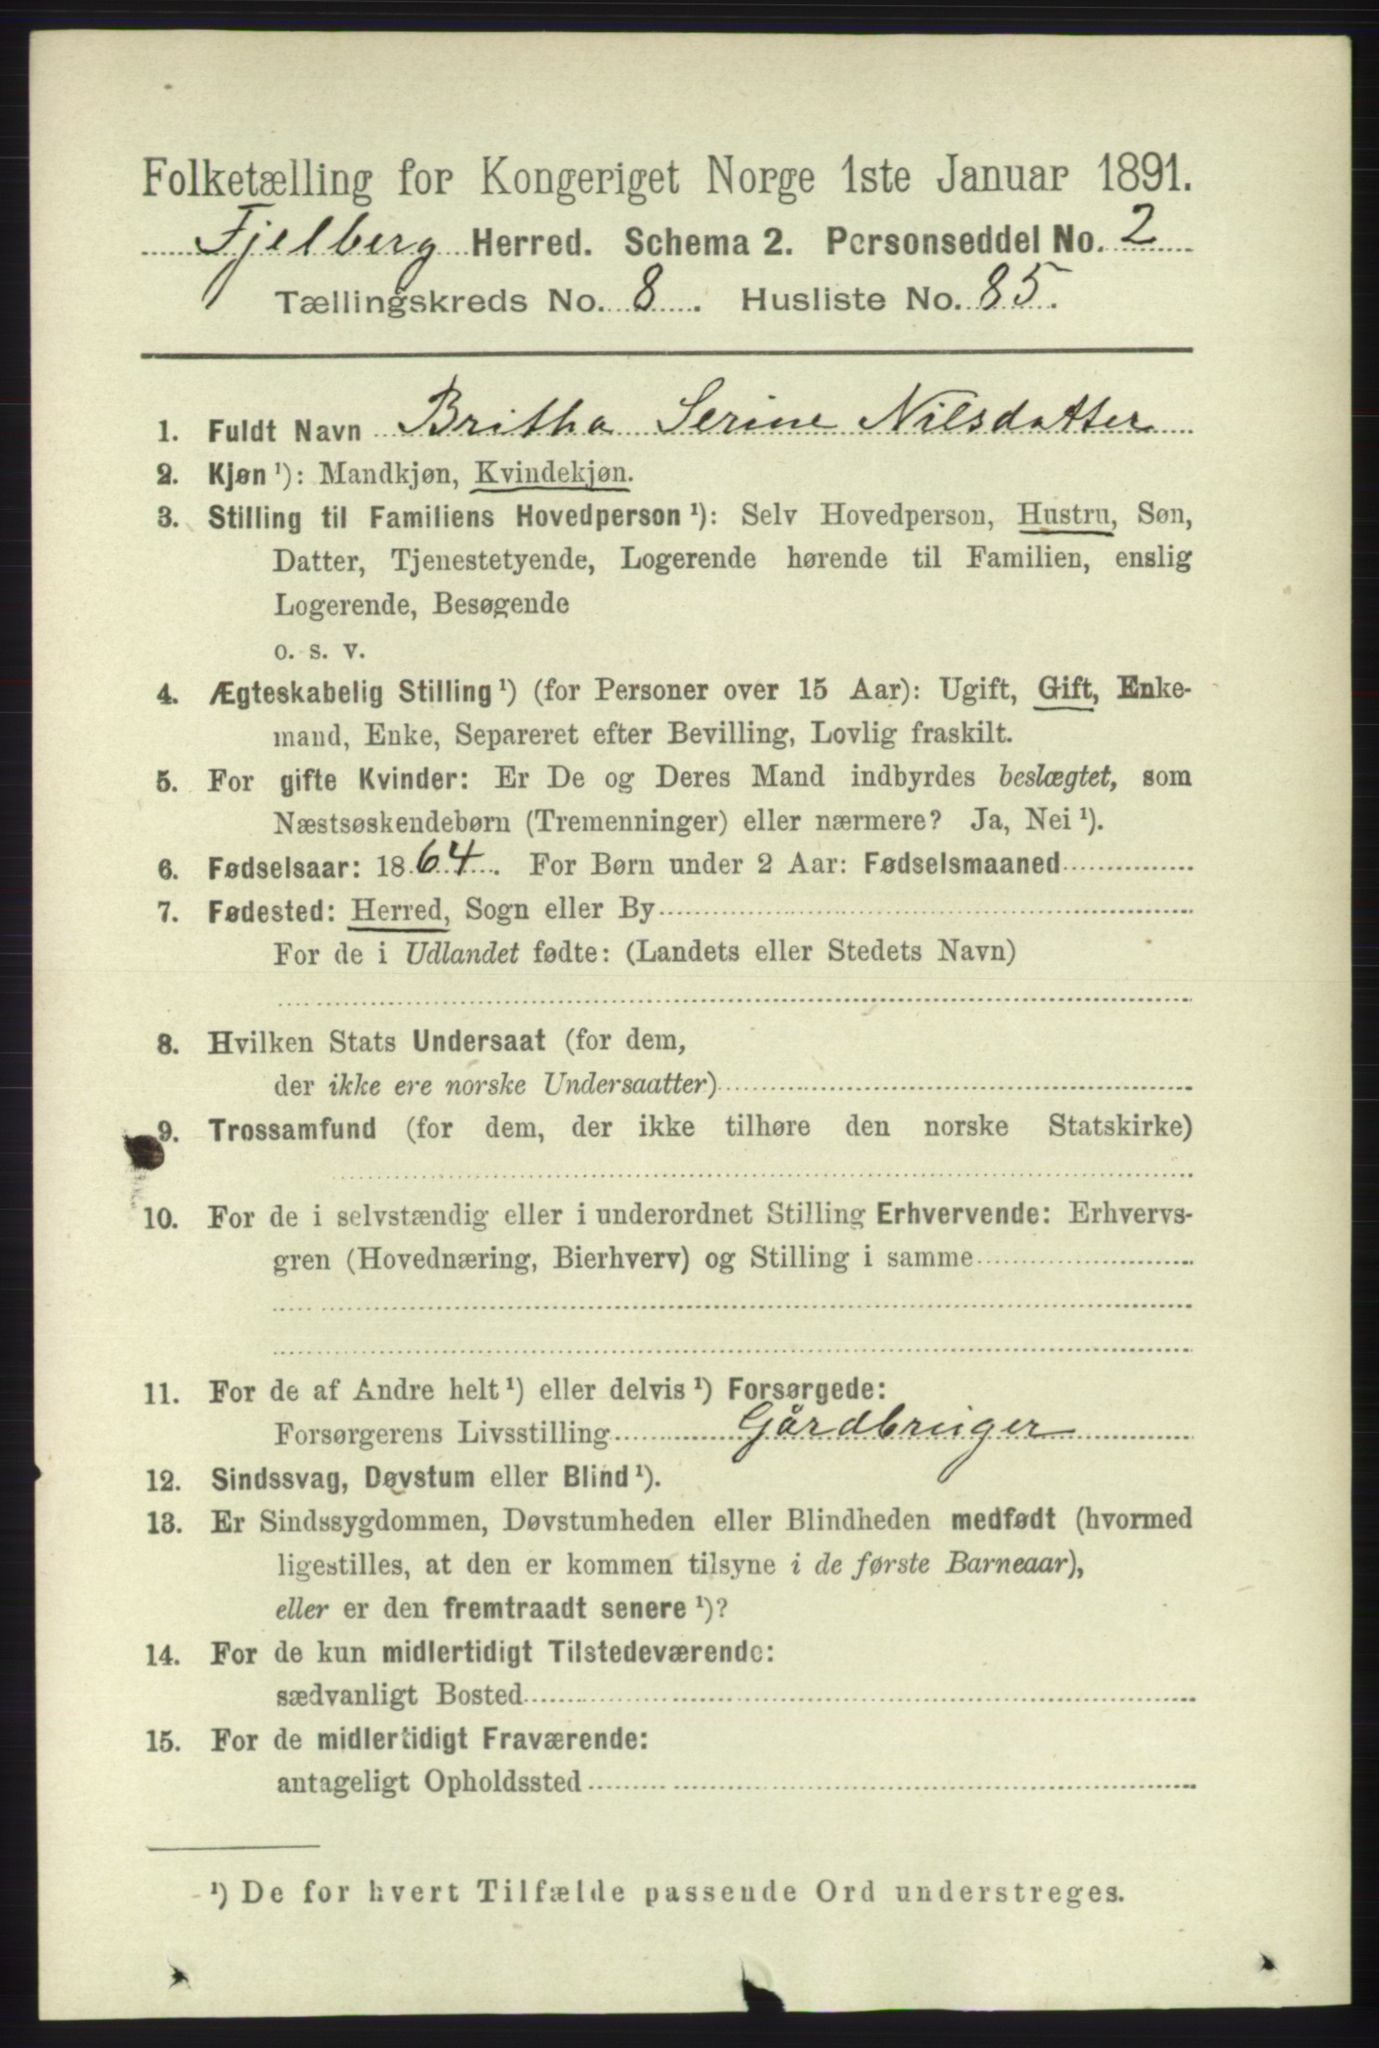 Folketælling for Kongeriget Norge 1ste Januar 1891.
Fjelberg Herred. Schema 2. Personseddel No. 2
Tællingskreds No. 8. Husliste No. 85.
1. Fuldt Navn Britha Serine Nilsdatter
2. Kjøn¹): Mandkjøn, Kvindekjøn.
3. Stilling til Familiens Hovedperson¹): Selv Hovedperson, Hustru, Søn,
Datter, Tjenestetyende, Logerende hørende til Familien, enslig
Logerende, Besøgende
o. s. v.
4. Ægteskabelig Stilling¹) (for Personer over 15 Aar): Ugift, Gift, Enke-
mand, Enke, Separeret efter Bevilling, Lovlig fraskilt.
5. For gifte Kvinder: Er De og Deres Mand indbyrdes beslægtet, som
Næstsøskendebørn (Tremenninger) eller nærmere? Ja, Nei¹).
6. Fødselsaar: 1864. For Børn under 2 Aar: Fødselsmaaned
7. Fødested: Herred, Sogn eller By
For de i Udlandet fødte: (Landets eller Stedets Navn)
8. Hvilken Stats Undersaat (for dem,
der ikke ere norske Undersaatter)
9. Trossamfund (for dem, der ikke tilhøre den norske Statskirke)
10. For de i selvstændig eller i underordnet Stilling Erhvervende: Erhvervs-
gren (Hovednæring, Bierhverv) og Stilling i samme
11. For de af Andre helt¹) eller delvis¹) Forsørgede:
Forsørgerens Livsstilling Gårdbruger
12. Sindssvag, Døvstum eller Blind¹).
13. Er Sindssygdommen, Døvstumheden eller Blindheden medfødt (hvormed
ligestilles, at den er kommen tilsyne i de første Barneaar),
eller er den fremtraadt senere¹)?
14. For de kun midlertidigt Tilstedeværende:
sædvanligt Bosted
15. For de midlertidigt Fraværende:
antageligt Opholdssted
¹) De for hvert Tilfælde passende Ord understreges.